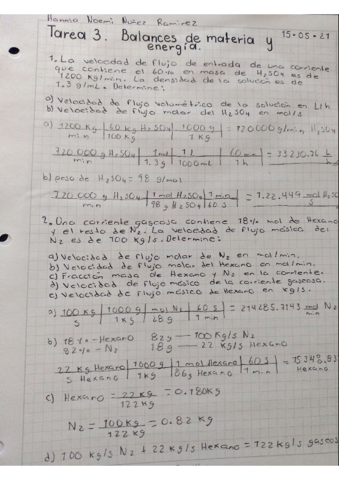 Hanna Noemi Nuñez Ramirez
Tarea 3. Balances de materia y energía. 15-05-21
1. La velocidad de flujo de entrada de una corriente
que contiene el 60% en masa de H2SO4 es de
1200 kg/min. La densidad de la solución es de
1.3 g/mL. Determine:
a) Velocidad de flujo volumétrico de la solución en L/h
b) Velocidad de flujo molar del H2SO4 en mol/s
a) 1200 kg | 60 kg H2SO4 | 1000 g = 720000 g/min H2SO4
min | 100 kg | 1 kg
720 000 g H2SO4 | 1 ml | 1 L | 60 min = 33230.76 L
min | 1.3 g | 1000 mL | 1 h h
b) peso de H2SO4 = 98 g/mol
720 000 g H2SO4 | 1 mol H2SO4 | 1 min = 122.449 mol H2SO4
min | 98 g H2SO4 | 60 s s
2. Una corriente gaseosa contiene 18% mol de Hexano
y el resto de N2. La velocidad de flujo másico del
N2 es de 100 kg/s. Determine:
a) Velocidad de flujo molar de N2 en mol/min.
b) Velocidad de flujo molar del Hexano en mol/min.
c) Fracción masa de Hexano y N2 en la corriente.
d) Velocidad de flujo másico de la corriente gaseosa.
e) Velocidad de flujo másico de Hexano en kg/s.
a) 100 kg | 1000 g | mol N2 | 60 s = 214285.7143 mol N2
s | 1 kg | 28 g | 1 min min
b) 18% - Hexano 82g — 100 kg/s N2
82% - N2 18g — 22 kg/s Hexano
22 kg Hexano | 1000 g | 1 mol Hexano | 60 s
s Hexano | 1 kg | 86g Hexano | 1 min Hexano
c) Hexano = 22 kg = 0.180 kg
122 kg
N2 = 100 kg = 0.82 kg
122 kg
d) 100 kg/s N2 + 22 kg/s Hexano = 122 kg/s gaseos